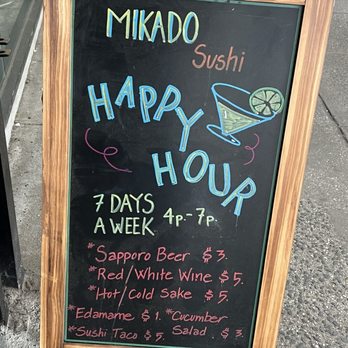 MIKADO
Sushi
HAPPY
HOUR
7 DAYS
A WEEK 4p.-7p.
*Sapporo Beer $3.
*Red/White Wine $5.
*Hot/Cold Sake $5.
*Edamame $1. *Cucumber
*Sushi Taco $5. Salad. $3.